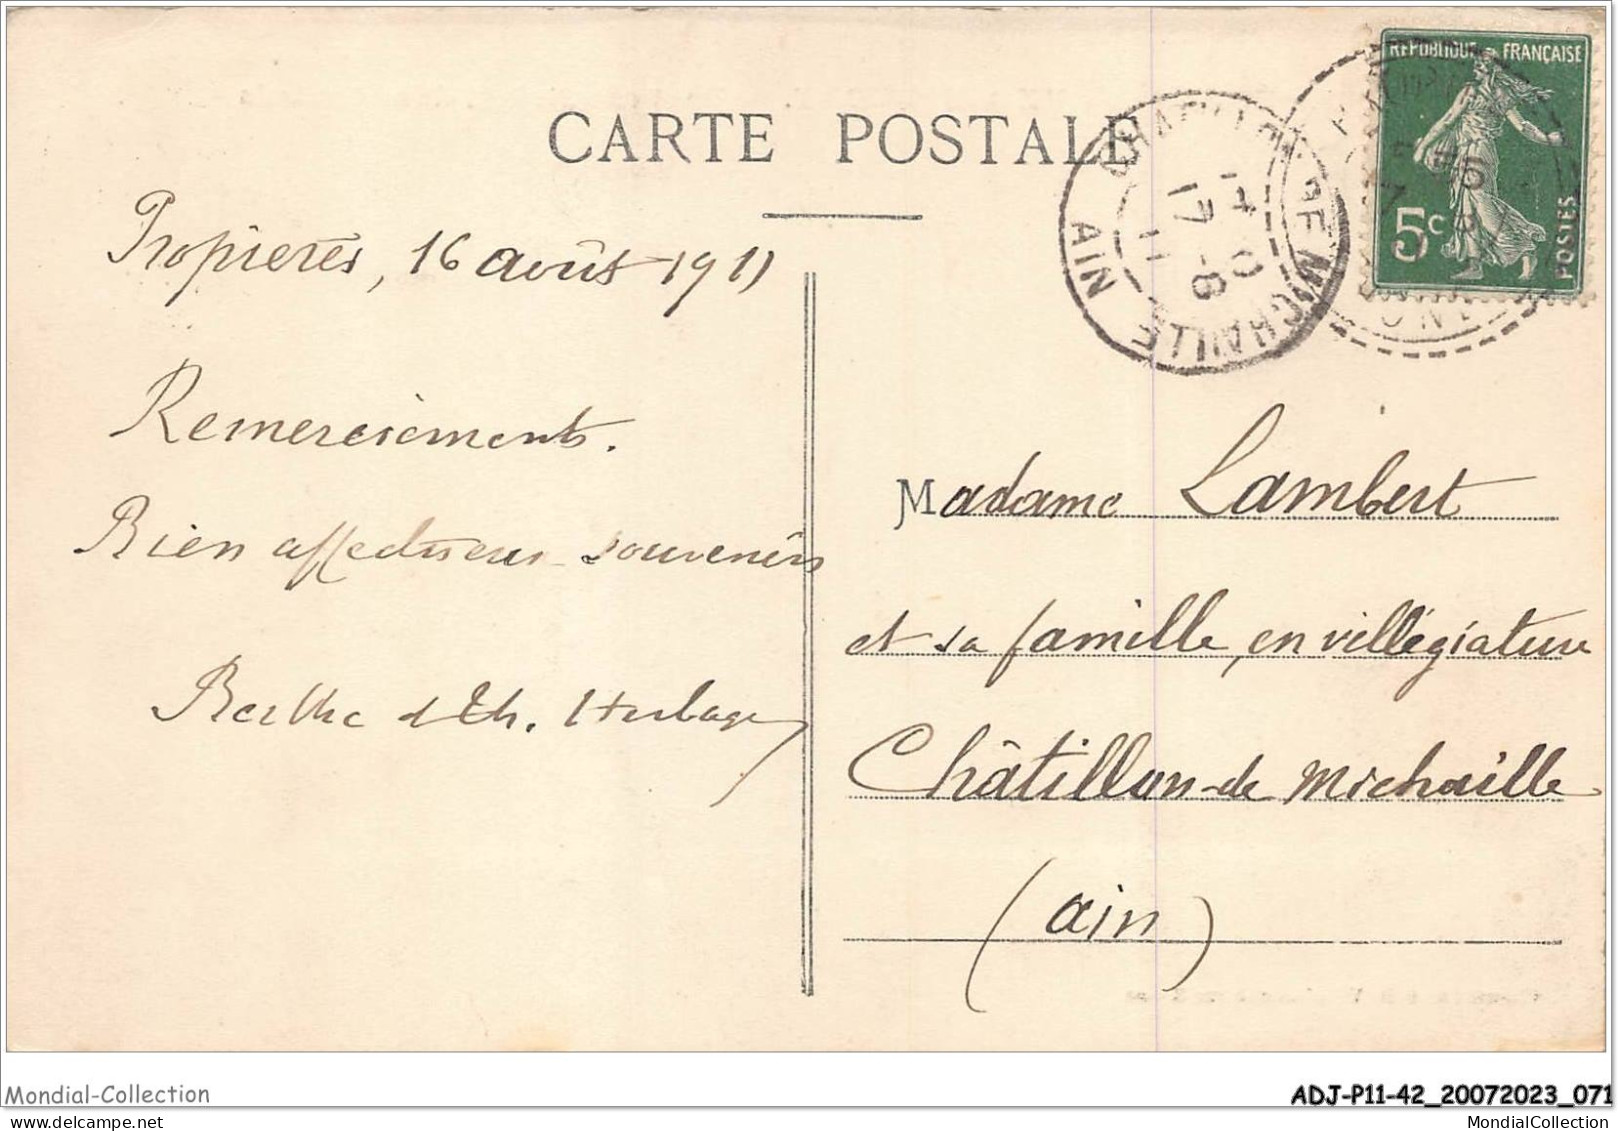 CARTE POSTALE
RÉPUBLIQUE FRANÇAISE
5c
POSTES
CHATILLON DE MICHAILLE
17 -8
11
AIN
Propières, 16 août 1911
Remerciements.
Bien affectueux souvenirs
Berthe et Th.
Madame Lambert
et sa famille, en villégiature
Châtillon-de Michaille
(ain)
Mondial-Collection
ADJ-P11-42_20072023_071
MondialCollection